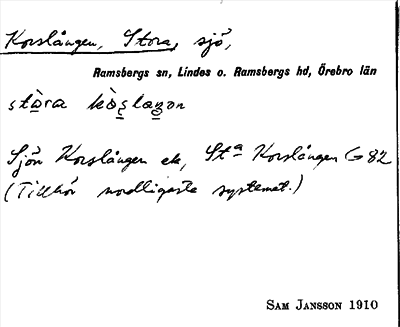 Korslången, Stora, sjö,
Ramsbergs sn, Lindes o. Ramsbergs hd, Örebro län
stòra kòslaŋən
Sjön Korslången ek, Stª Korslången G 82
(Tillhör nordligaste systemet.)
SAM JANSSON 1910